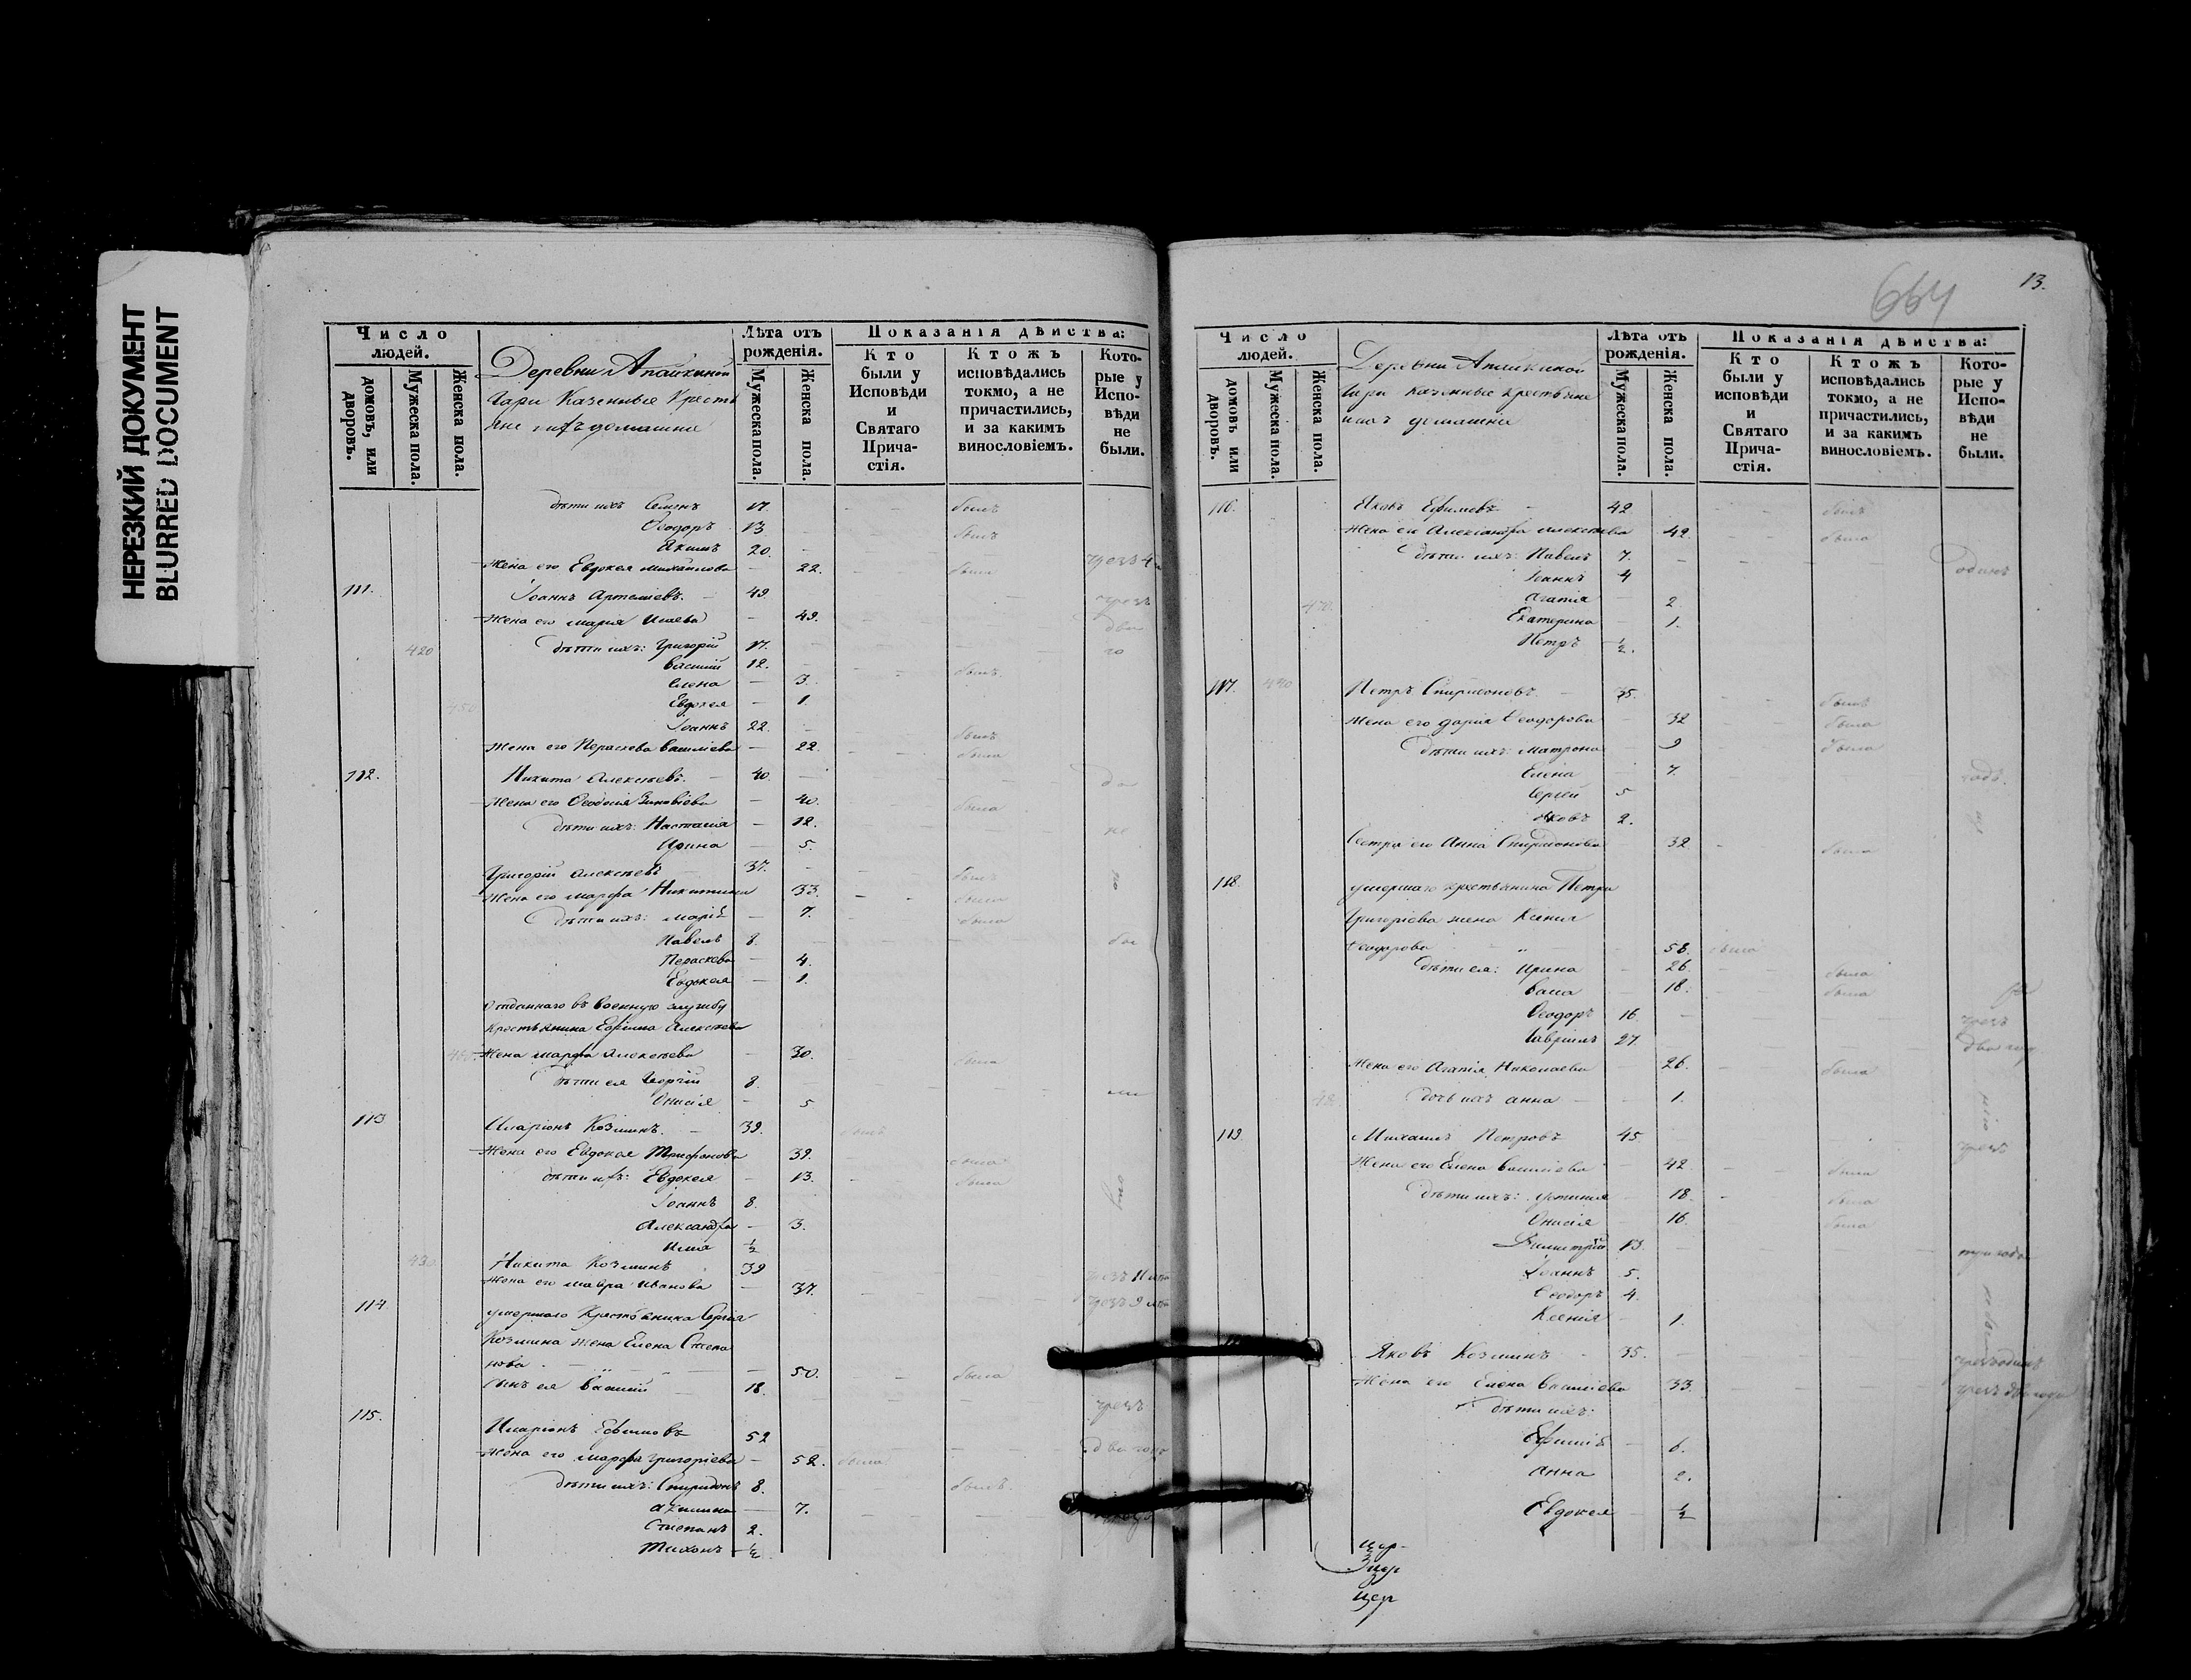 НЕРЕЗКИЙ ДОКУМЕНТ
BLURRED DOCUMENT
Число людей.
домовъ, или дворовъ.
Мужеска пола.
Женска пола.
Деревни Апайкиной
Гари Казенные Кресть
яне ихъ домашни
Лѣта отъ рожденія.
Мужеска пола.
Женска пола.
Показанія дѣйства:
Кто были у Исповѣди и Святаго Прича-стія.
Ктожъ исповѣдались токмо, а не причастились, и за какимъ винословіемъ.
Кото-рые у Испо-вѣди не были.
дѣти ихъ Семенъ 17. былъ
Ѳеодоръ 13 былъ
Акимъ 20.
Жена его Евдокея Михайлова 22. была чрезъ 4
111. Іоаннъ Артемьевъ. 49. чрезъ
Жена его Марія Исаева 49. два
420 дѣти ихъ: Григорій 17. го
Василій 12. былъ
Елена 3.
450 Евдокея 1.
Іоаннъ 22. былъ
Жена его Пераскева Василіева 22. была
112. Никита Алексѣевъ. 40. до
Жена его Ѳеодосія Зиновіева 40. была
дѣти ихъ: Настасія 12. не
Ирина 5.
Григорій Алексѣевъ 37. былъ
Жена его Марфа Никитина 33. была
дѣти ихъ: Марія 7. была
Павелъ 8. бы
Пераскева 4.
Евдокея 1.
Отданнаго въ военную службу
крестьянина Ефима Алексѣева
460. Жена Марфа Алексѣева 30. была
дѣти ея Георгій 8. ли
Онисія 5
113 Иларіонъ Козминъ. 39. былъ
Жена его Евдокея Трифонова 39. была
дѣти ихъ: Евдокея 13. была
Іоаннъ 8.
Александра 3.
Илія ½
430 Никита Козминъ 39 чрезъ 11 лѣтъ
Жена его Мавра Иванова 37. чрезъ 9 лѣтъ
114 умершаго Крестьянина Сергія
Козмина жена Елена Степа
нова 50. была
Сынъ ея Василій 18. чрезъ
115. Иларіонъ Ефимовъ 52 два года
Жена его Марфа Григоріева 52. была
дѣти ихъ: Спиридонъ 8. былъ.
Акилина 7.
Стѣпанъ 2.
Тихонъ ½
664
13.
Число людей.
домовъ или дворовъ.
Мужеска пола.
Женска пола.
Деревни Апайкиной
Гари Казенные крестьяне
ихъ домашни
Лѣта отъ рожденія.
Мужеска пола.
Женска пола.
Показанія дѣйства:
Кто были у исповѣди и Святаго Прича-стія.
Ктожъ исповѣдались токмо, а не причастились, и за какимъ винословіемъ.
Кото-рые у Испо-вѣди не были.
116. Яковъ Ефимовъ 42 былъ
Жена его Александра Алексѣева 42. была
дѣти ихъ: Павелъ 7. одинъ
Іоаннъ 4
470. Агапія 2.
Екатерина 1.
Петръ ½.
117. 440 Петръ Спиридоновъ. 35. былъ
Жена его Дарія Ѳеодорова 32 была
дѣти ихъ: Матрона 9 была
Елена 7. годъ.
Сергей 5
Яковъ 2.
Сестра его Анна Спиридонова 32 была
118. умершаго крестьянина Петра
Григоріева жена Ксенія
Ѳеодорова 58. была
дѣти ея: Ирина 26. была
Васса 18. была
Ѳеодоръ 16 чрезъ
Гавріилъ 27. два года
Жена его Агапія Николаева 26. была
48. Дочь ихъ Анна 1.
119. Михаилъ Петровъ 45. чрезъ
Жена его Елена Василіева 42. была
дѣти ихъ: Устинія 18. была
Онисія 16. была
Димитрій 13. три года
Іоаннъ 5.
Ѳеодоръ 4.
Ксенія 1.
Яковъ Козминъ 35. чрезъ одинъ
Жена его Елена Василіева 33. чрезъ два года
дѣти ихъ:
Ефимія 6.
Анна 2.
Евдокея ½
цер
цер